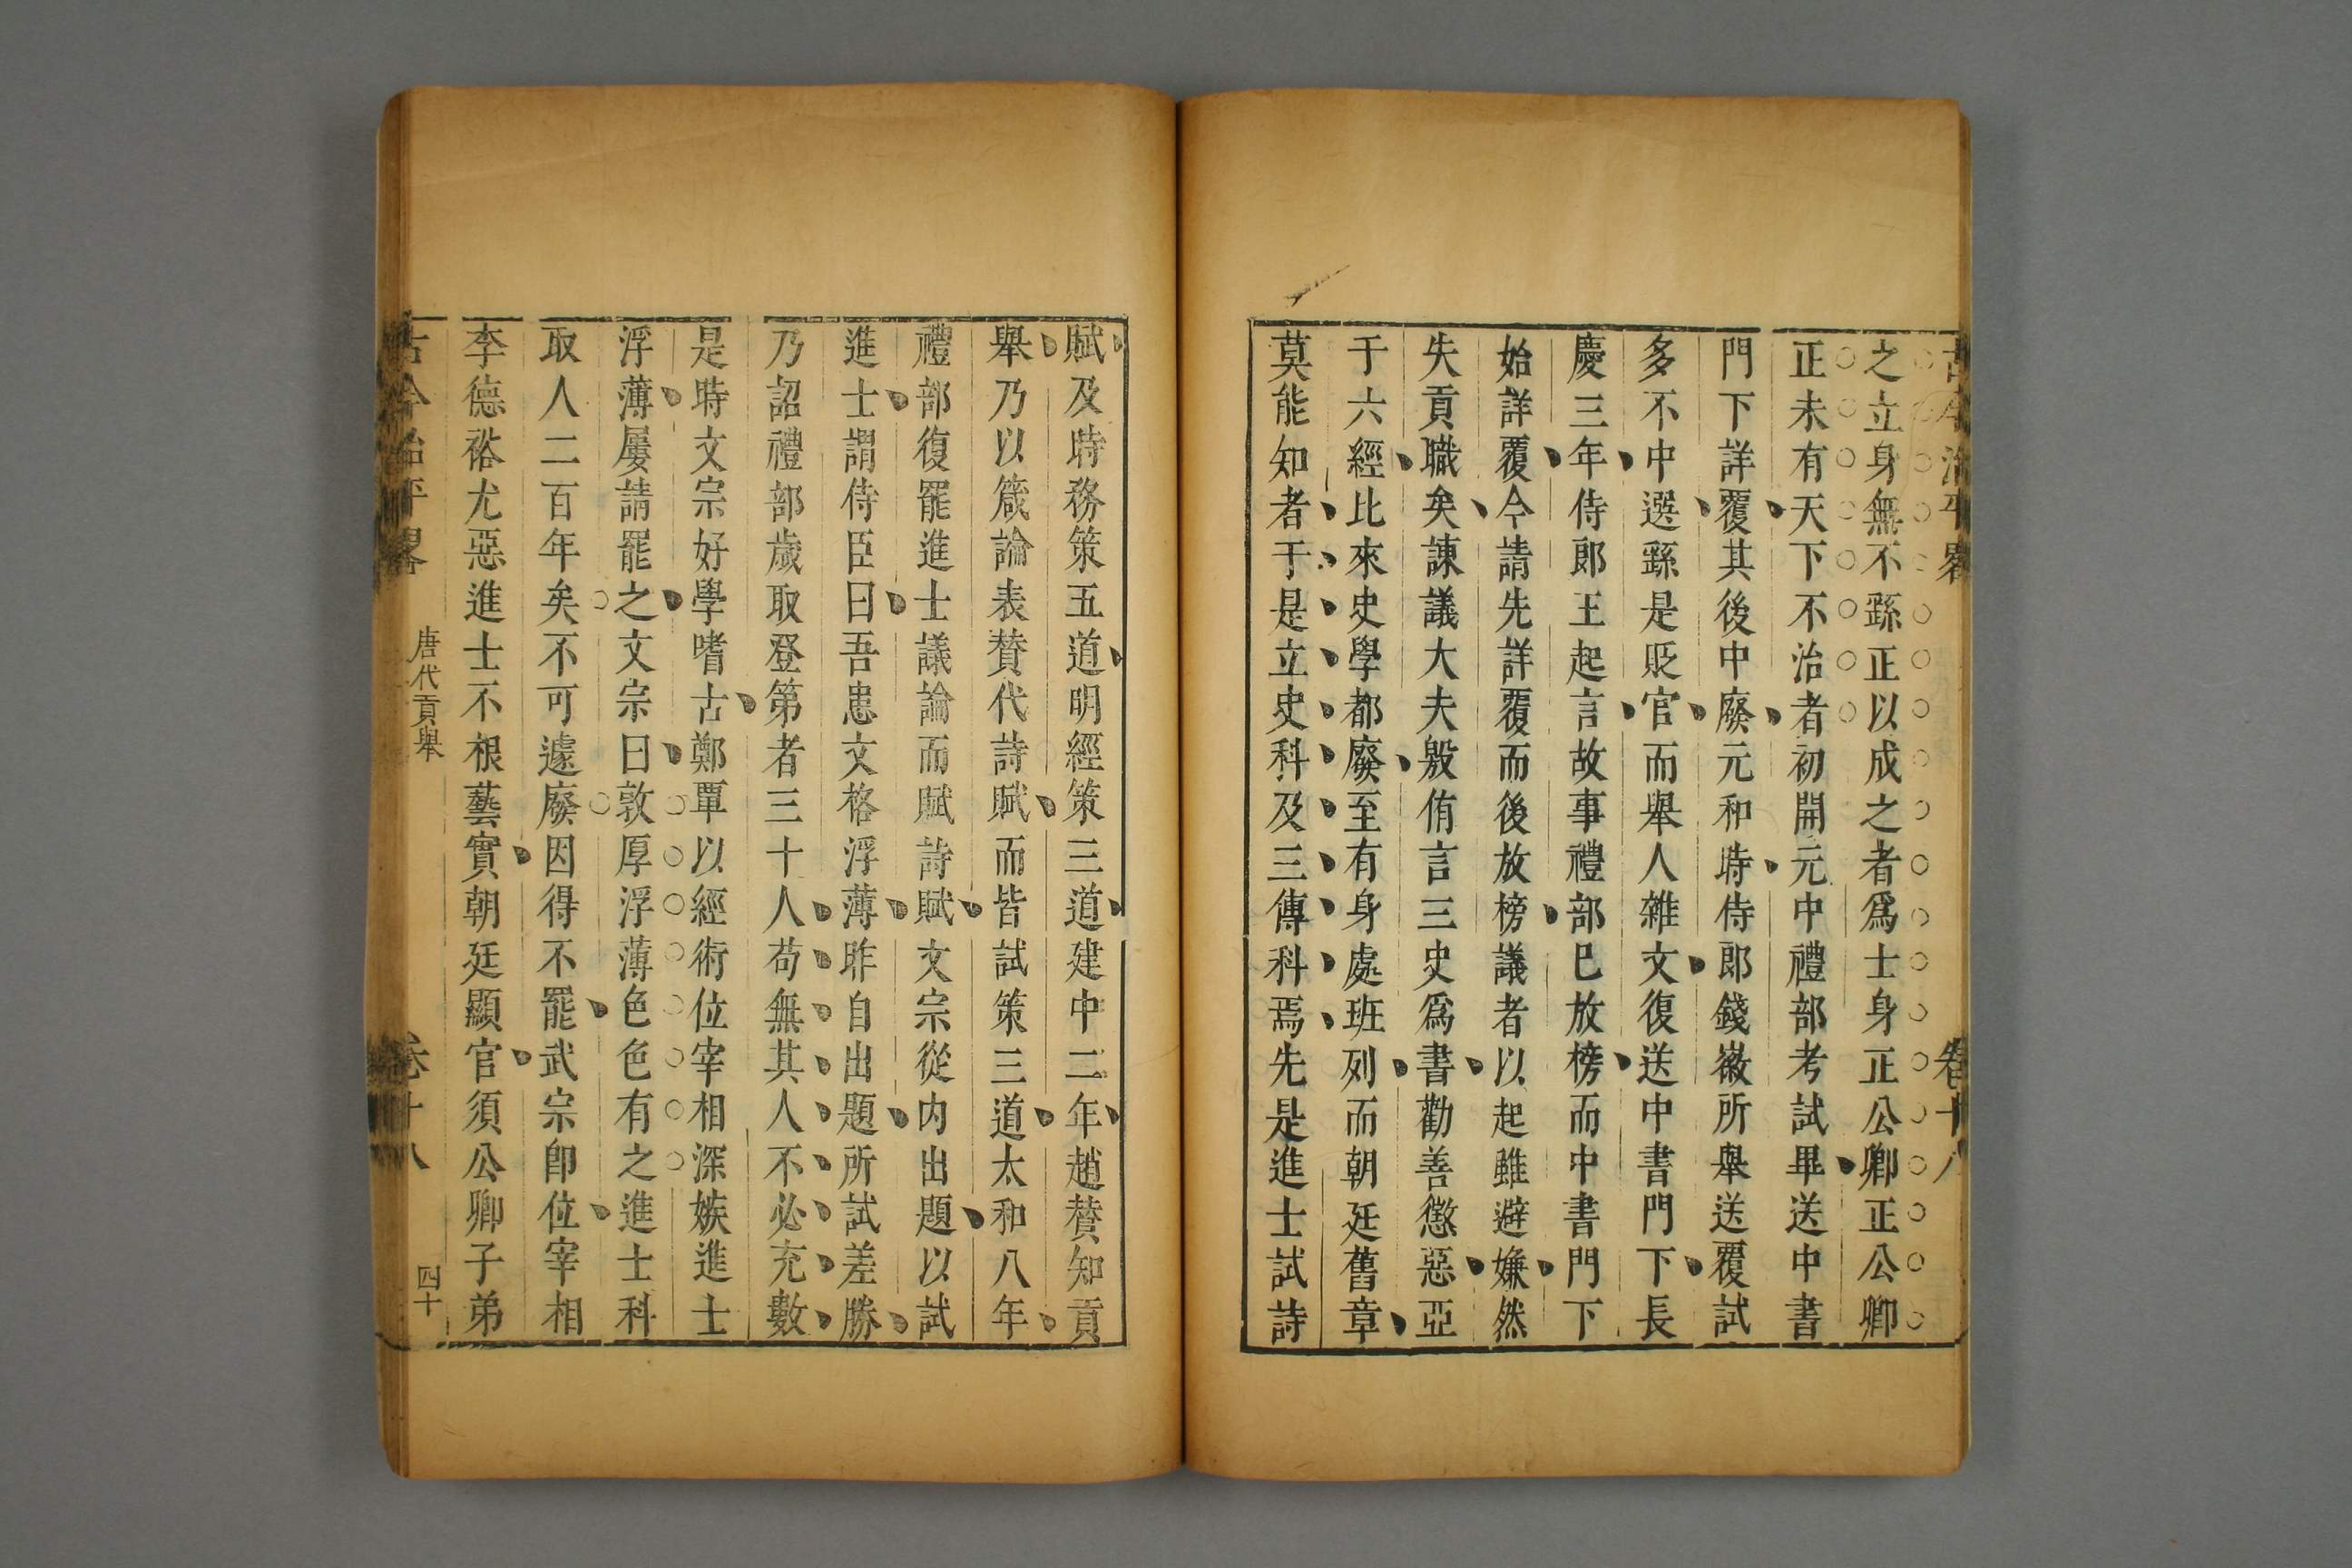 古今治平畧 卷十八
之立身無不繇正以成之者爲士身正公卿正公卿
正未有天下不治者初開元中禮部考試畢送中書
門下詳覆其後中廢元和時侍郎錢徽所舉送覆試
多不中選繇是貶官而舉人雜文復送中書門下長
慶三年侍郎王起言故事禮部已放榜而中書門下
始詳覆今請先詳覆而後放榜議者以起雖避嫌然
失貢職矣諫議大夫殷侑言三史爲書勸善懲惡亞
于六經比來史學都廢至有身處班列而朝廷舊章
莫能知者于是立史科及三傳科焉先是進士試詩
賦及時務策五道明經策三道建中二年趙贊知貢
舉乃以箴論表贊代詩賦而皆試策三道太和八年
禮部復罷進士議論而賦詩賦文宗從內出題以試
進士謂侍臣曰吾患文格浮薄昨自出題所試差勝
乃詔禮部歲取登第者三十人苟無其人不必充數
是時文宗好學嗜古鄭覃以經術位宰相深嫉進士
浮薄屢請罷之文宗曰敦厚浮薄色色有之進士科
取人二百年矣不可遽廢因得不罷武宗卽位宰相
李德裕尤惡進士不根藝實朝廷顯官須公卿子弟
古今治平畧 唐代貢舉 卷十八 四十